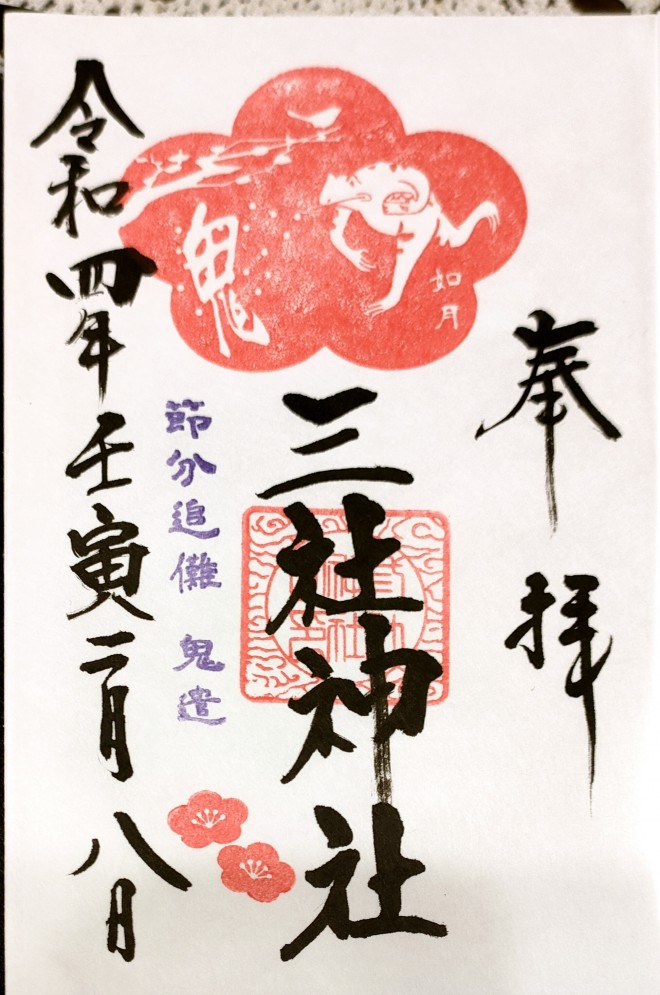 奉拝
如月
鬼
三社神社
節分追儺 鬼遣
令和四年壬寅二月八月